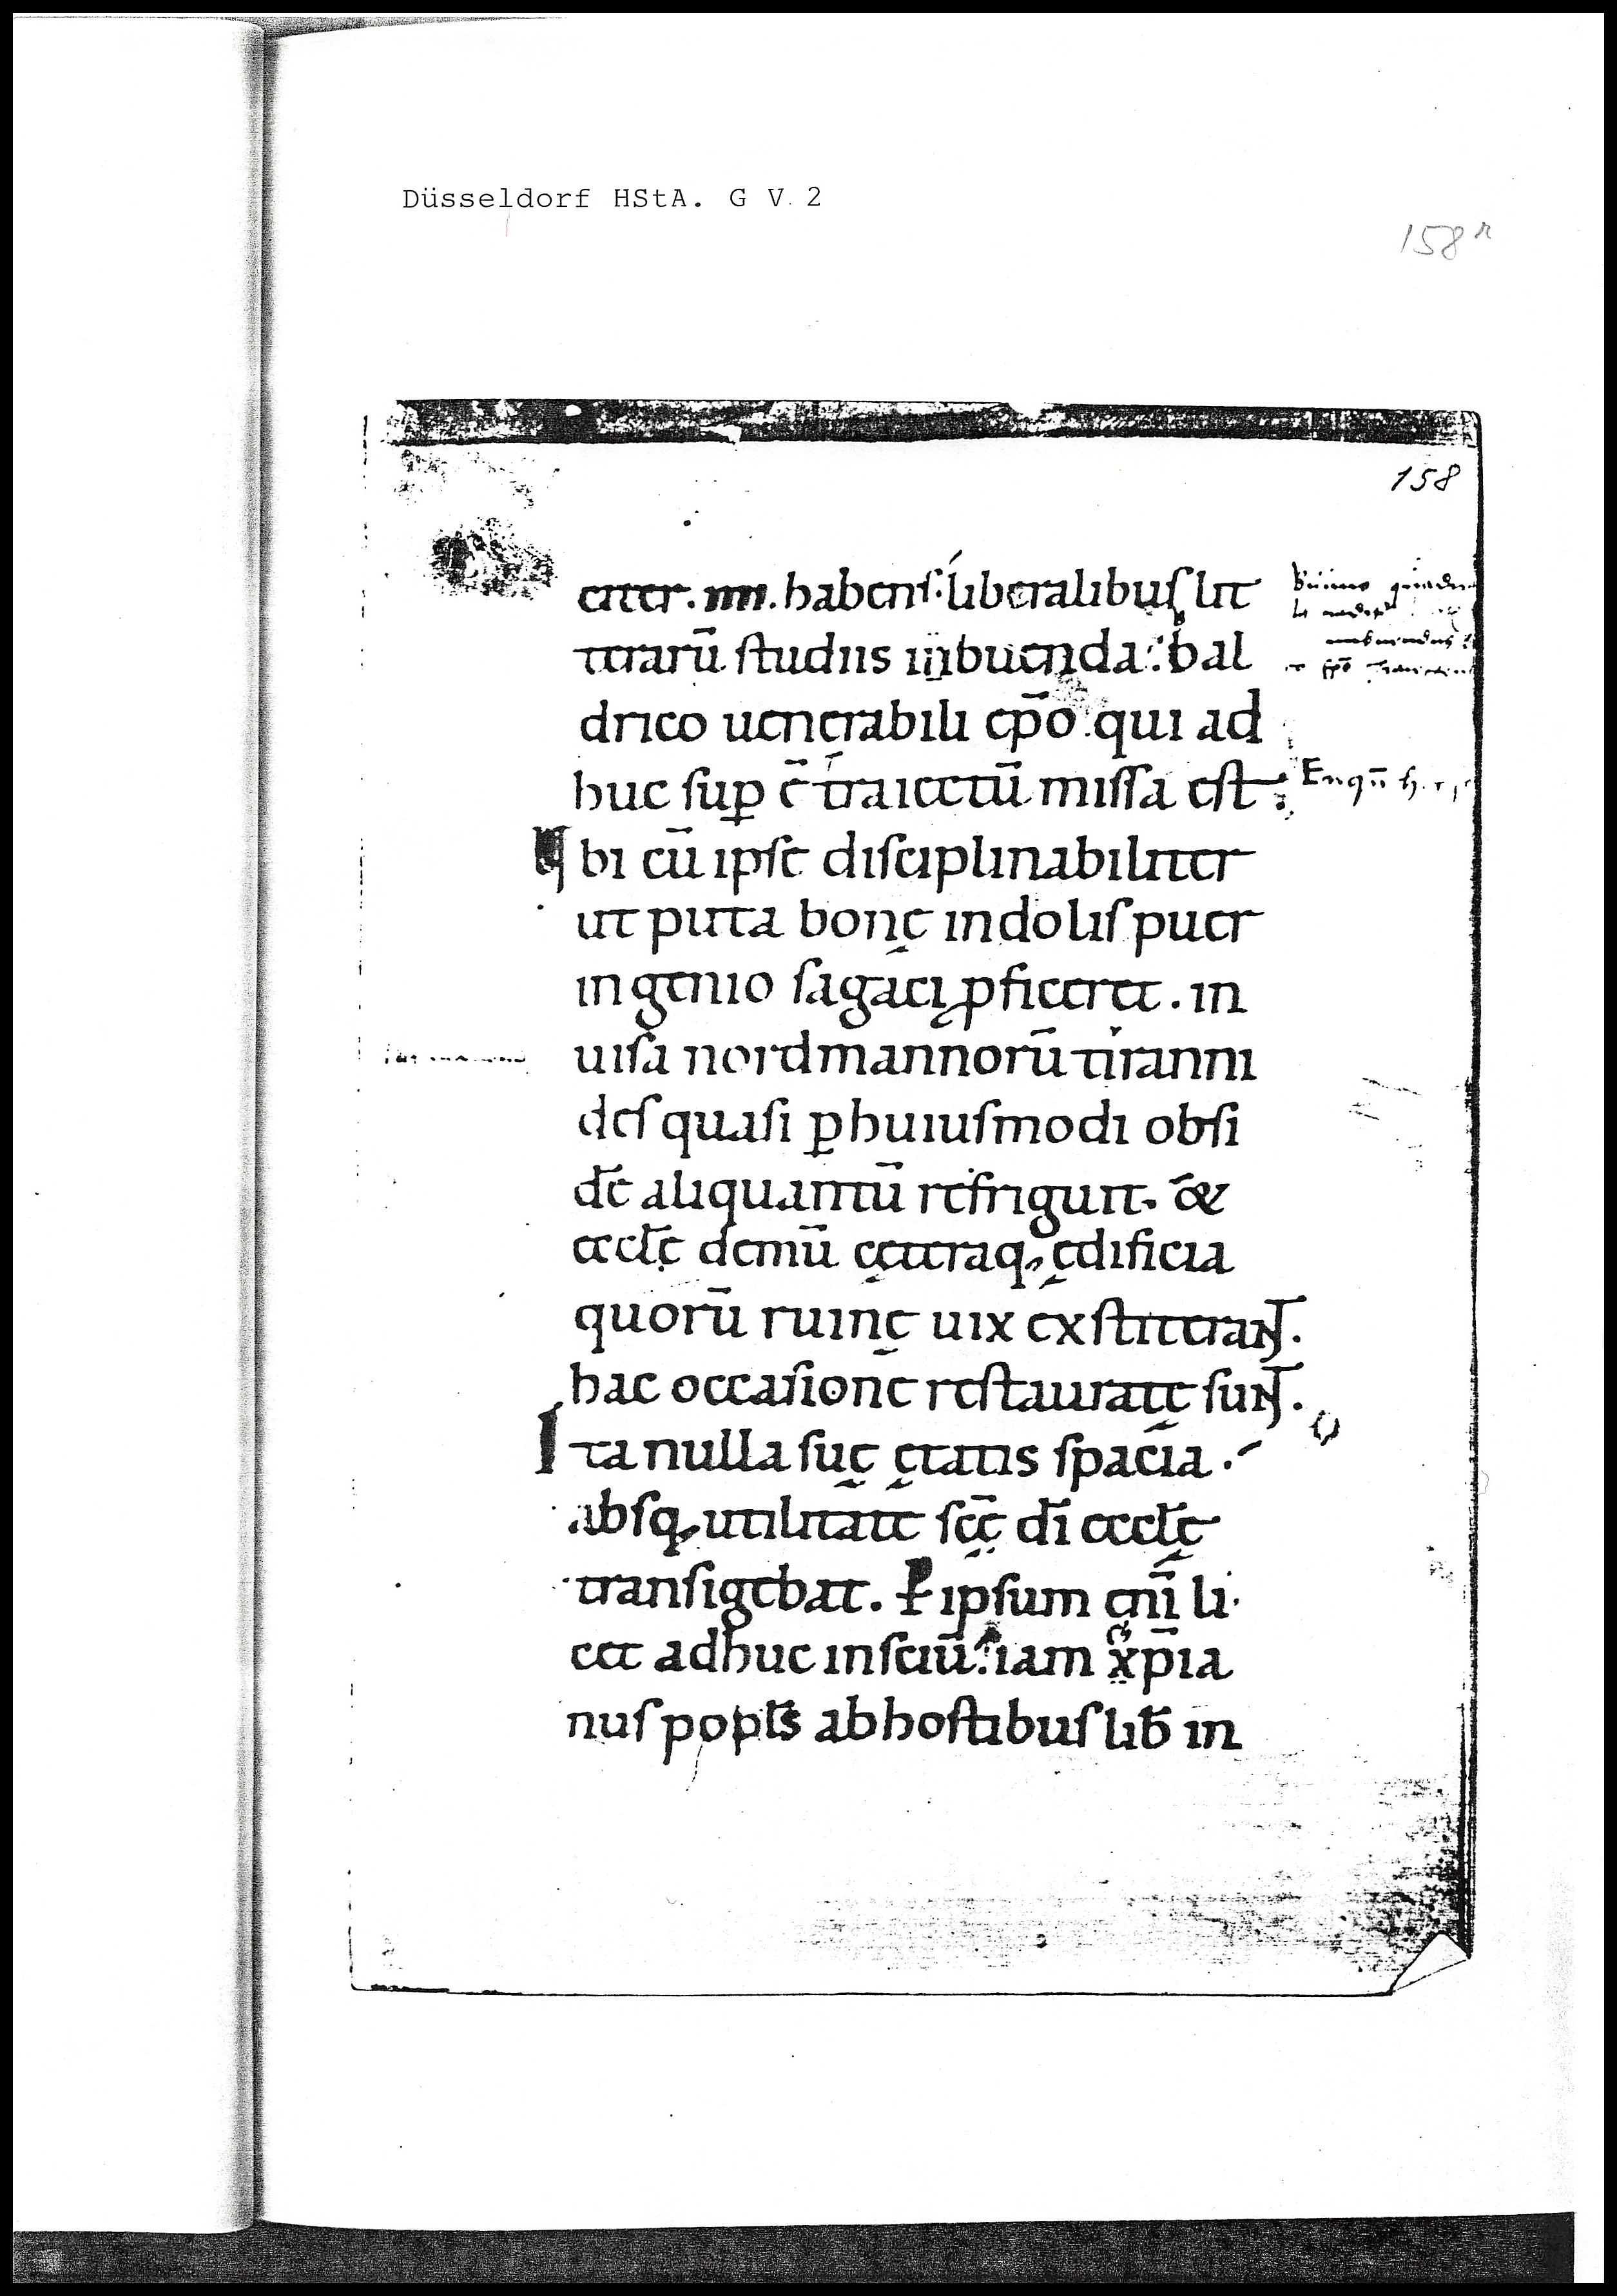 Düsseldorf HStA. G V 2
158r
158
citer. iiii. habens. liberalibus lit
terarū studiis inbuenda: bal
drico uenerabili ep̄o qui ad
huc suꝑ ē traiectū missa est.
Ubi cū ipse disciplinabiliter
ut puta bonę indolis puer
ingenio sagaci ꝓficeret. in
uisa nordmannorū tiranni
des quasi ꝑ huiusmodi obsi
dē aliquantū refriguit. &
ęcclę̄ demū cęteraq; ędificia
quorū ruinę uix exstiterant.
hac occasione restauratę sunt.
Ita nulla suę ętatis spacia.
absq; utilitate scę̄ dī ęcclę̄
transigebat. P̵ ipsum enī li
cet adhuc insciū: iam xp̄ia
nus popl̄s ab hostibus lib̄ in